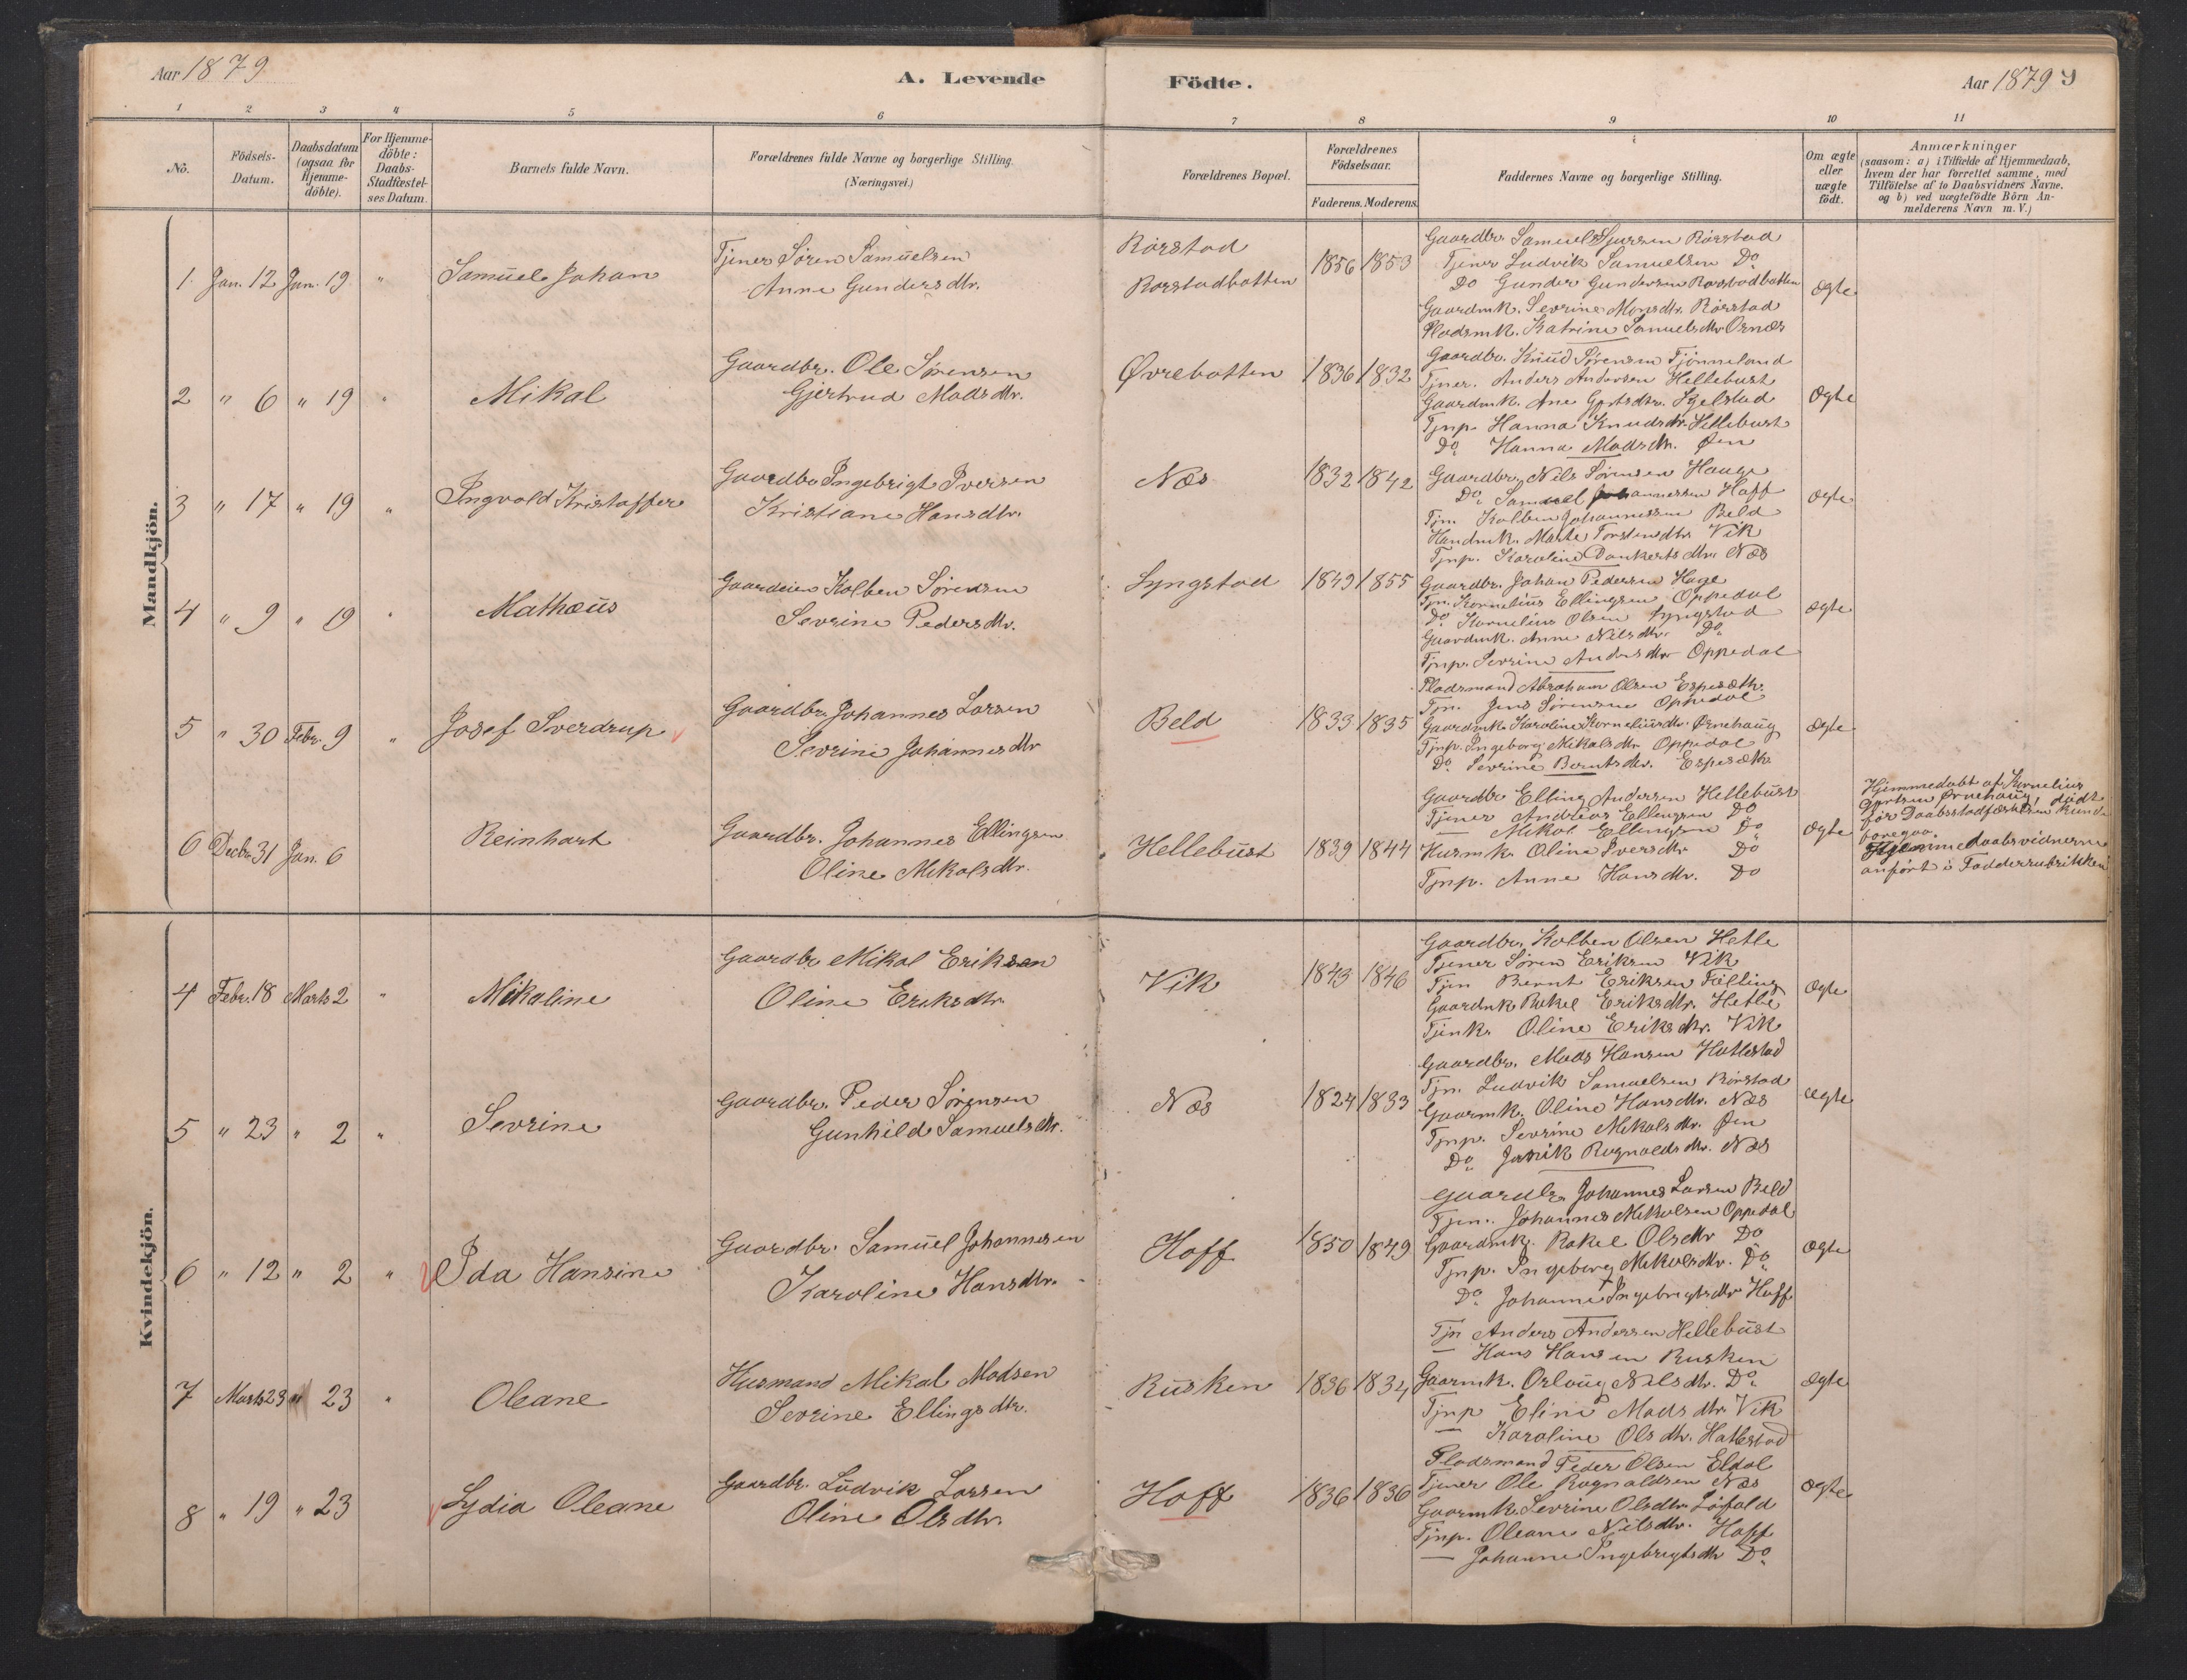 Aar 1879
A. Levende Födte.
Aar 1879 9
1 2 3 4 5 6 7 8 9 10 11
No.
Födsels-Datum.
Daabsdatum (ogsaa for Hjemme-döbte).
For Hjemme-döbte: Daabs-Stadfæstel-ses Datum.
Barnets fulde Navn.
Forældrenes fulde Navne og borgerlige Stilling. (Næringsvei.)
Forældrenes Bopæl.
Forældrenes Födselsaar.
Faderens. Moderens.
Faddernes Navne og borgerlige Stilling.
Om ægte eller uægte födt.
Anmærkninger
(saasom: a) i Tilfælde af Hjemmedaab,
hvem der har forrettet samme, med
Tilföielse af to Daabsvidners Navne.
og b) ved uægtefödte Börn An-
melderens Navn m. V.)
Mandkjön.
1. Jan. 12 Jan. 19 " Samuel Johan
Tjener Søren Samuelsen
Anne Gundersdtr.
Rørstad
Rørstadbotten
1856 1853
Gaardbr. Samuel Sjursen Rørstad
Tjener Ludvik Samuelsen Do
Do Gunder Gundersen Rørstadbotten
Gaardmk. Sevrine Monsdtr. Rørstad
Pladsmk. Katrine Samuelsdtr Osnæs
ægte
2 " 6 " 19 " Mikal
Gaardbr. Ole Sørensen
Gjertrud Madsdtr.
Øvrebotten
1836 1832
Gaardbr. Knud Sørensen Tjønneland
Tjener. Anders Andersen Hellebust
Gaardmk. Ane Gjertsdtr. Sjelstad
Tjnp. Hanna Knudsdtr. Hellebust
Do. Hanna Madsdtr. Øen
Ægte
3 " 17 " 19 " Ingvald Kristoffer
Gaardbr Ingebrigt Iversen
Kristiane Hansdtr.
Næs
1832 1842
Gaardbr. Nils Sørensen Hauge
Do. Samuel Johannessen Hoff
Tjn. Kolben Johannessen Beld
Handmk. Marte Torstensdtr. Vik
Tjnp. Karoline Dankertsdtr. Næs
ægte
4 " 9 " 19 " Mathæus
Gaardeier Kolben Sørensen
Sevrine Pedersdtr.
Lyngstad
1849 1855
Gaardbr. Johan Pedersen Hage
Tjn. Kornelius Ellingsen Oppedal
Do Kornelius Olsen Lyngstad
Gaardmk. Anne Nilsdtr. Do
Tjnp. Sevrine Andersdtr. Oppedal
ægte
5 " 30 Febr. 9 " Josef Sverdrup
Gaardbr. Johannes Larsen
Sevrine Johannesdtr
Beld
1833 1835
Pladsmand Abraham Olsen Espesæth.
Tjn. Jens Sørensen Oppedal
Gaardmk. Karoline Korneliusdtr. Ørnehaug
Tjnp. Ingeborg Mikalsdtr Oppedal
Do. Sevrine Berntsdtr. Espesæth
ægte
6 Decbr. 31 Jan. 6 Reinhart
Gaardbr. Johannes Ellingsen
Oline Mikalsdtr.
Hellebust
1839 1844
Gaardbr Elling Andersen Hellebust
Tjener Andreas Ellingsen Do
— Mikal Ellingsen Do
Husmk. Oline Iversdtr Do
Tjnp. Anne Hansdtr. Do
ægte
Hjemmedøbt af Kornelius
Gjertsen Ørnehaug, dødt
før Daabsstadfæstelsen kunde
foregaa.
Hjemmedaabsvidnerne
anført i Fadderrubrikken
Kvindekjön.
4 Febr. 18 Marts 2 " Mikaline
Gaardbr Mikal Eriksen
Oline Eriksdtr.
Vik
1843 1846
Gaardbr. Kolben Olsen Hetle
Tjener Søren Eriksen Vik
Tjen Bernt Eriksen Følling
Gaardmk Rakel Eriksdtr. Hetle
Tjenk. Oline Eriksdtr. Vik
ægte
5 " 23 " 2 " Sevrine
Gaardbr. Peder Sørensen
Gunhild Samuelsdtr.
Næs
1824 1833
Gaardbr. Mads Hansen Hatlestad
Tjn. Ludvik Samuelsen Rørstad
Gaarmk. Oline Hansdtr. Næs
Tjnp. Sevrine Mikalsdtr. Øen
Do. Rognaldsdtr. Næs
ægte
6 " 12 " 2 " Ida Hansine
Gaardbr. Samuel Johannesen
Karoline Hansdtr.
Hoff
1850 1849
Gaardbr. Johannes Larsen Beld
Tjen. Johannes Mikalsen Oppedal
Gaardmk. Rakel Olsdtr Do
Tjnp. Ingeborg Mikalsdtr. Do
Do. Johanne Ingebrigtsdtr Hoff
ægte
7 Marts 23 " 23 " Oleane
Husmand Mikal Madsen
Sevrine Ellingsdtr.
Rusken
1836 1834
Tjn Anders Andersen Hellebust
— Hans Hansen Rusken
Gaarmk. Orloug Nilsdtr. Do.
Tjnp Eline Madsdtr. Vik
— Karoline Olsdtr. Hatlestad
ægte
8 " 19 " 23 Lydia Oleane
Gaardbr. Ludvik Larsen
Oline Olsdtr.
Hoff
1836 1836
Pladsmand Peder Olsen Eldal
Tjener Ole Rognaldsen Næs
Gaarmk Sevrine Olsdtr. Løfald
Tjnp. Oleane Nilsdtr. Hoff
— Johanne Ingebrigtsdtr Do.
ægte